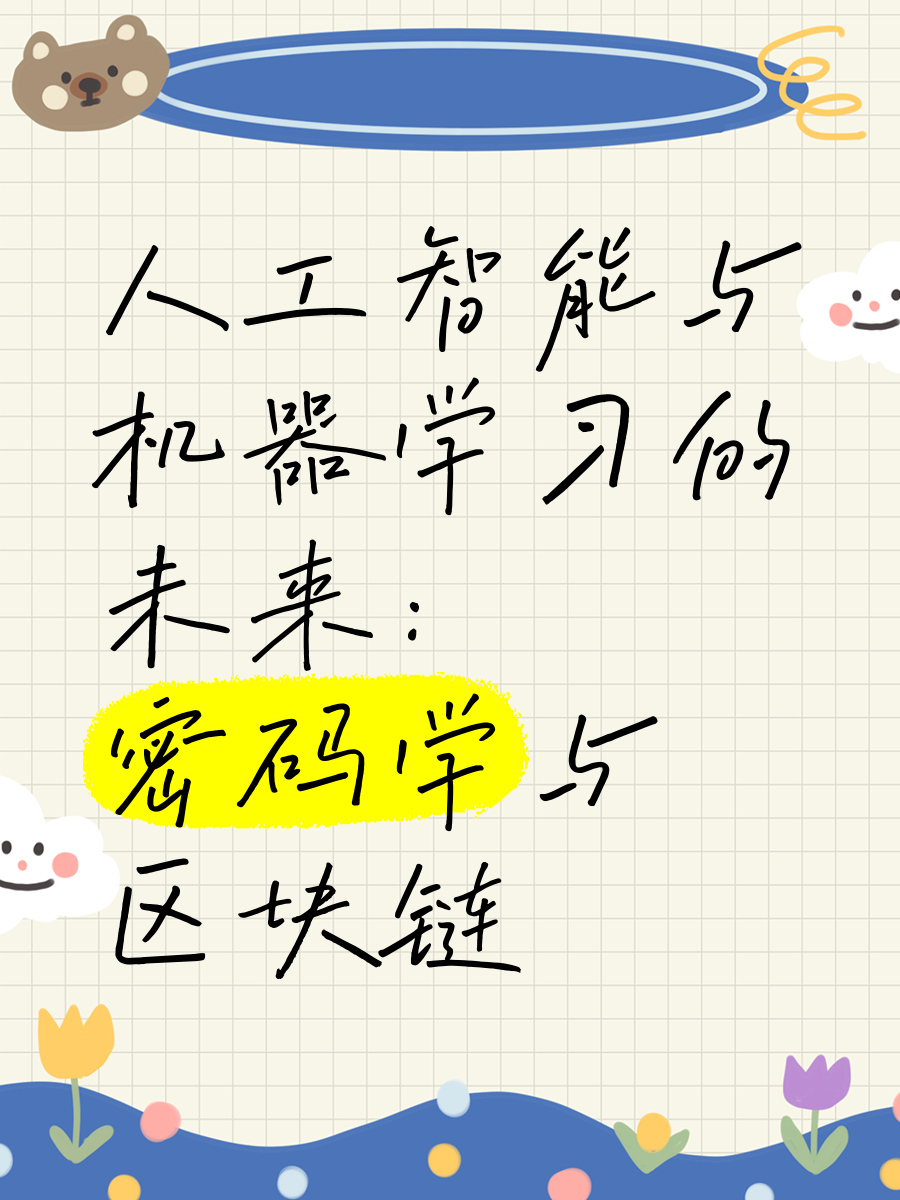 人工智能与
机器学习的
未来：
密码学与
区块链